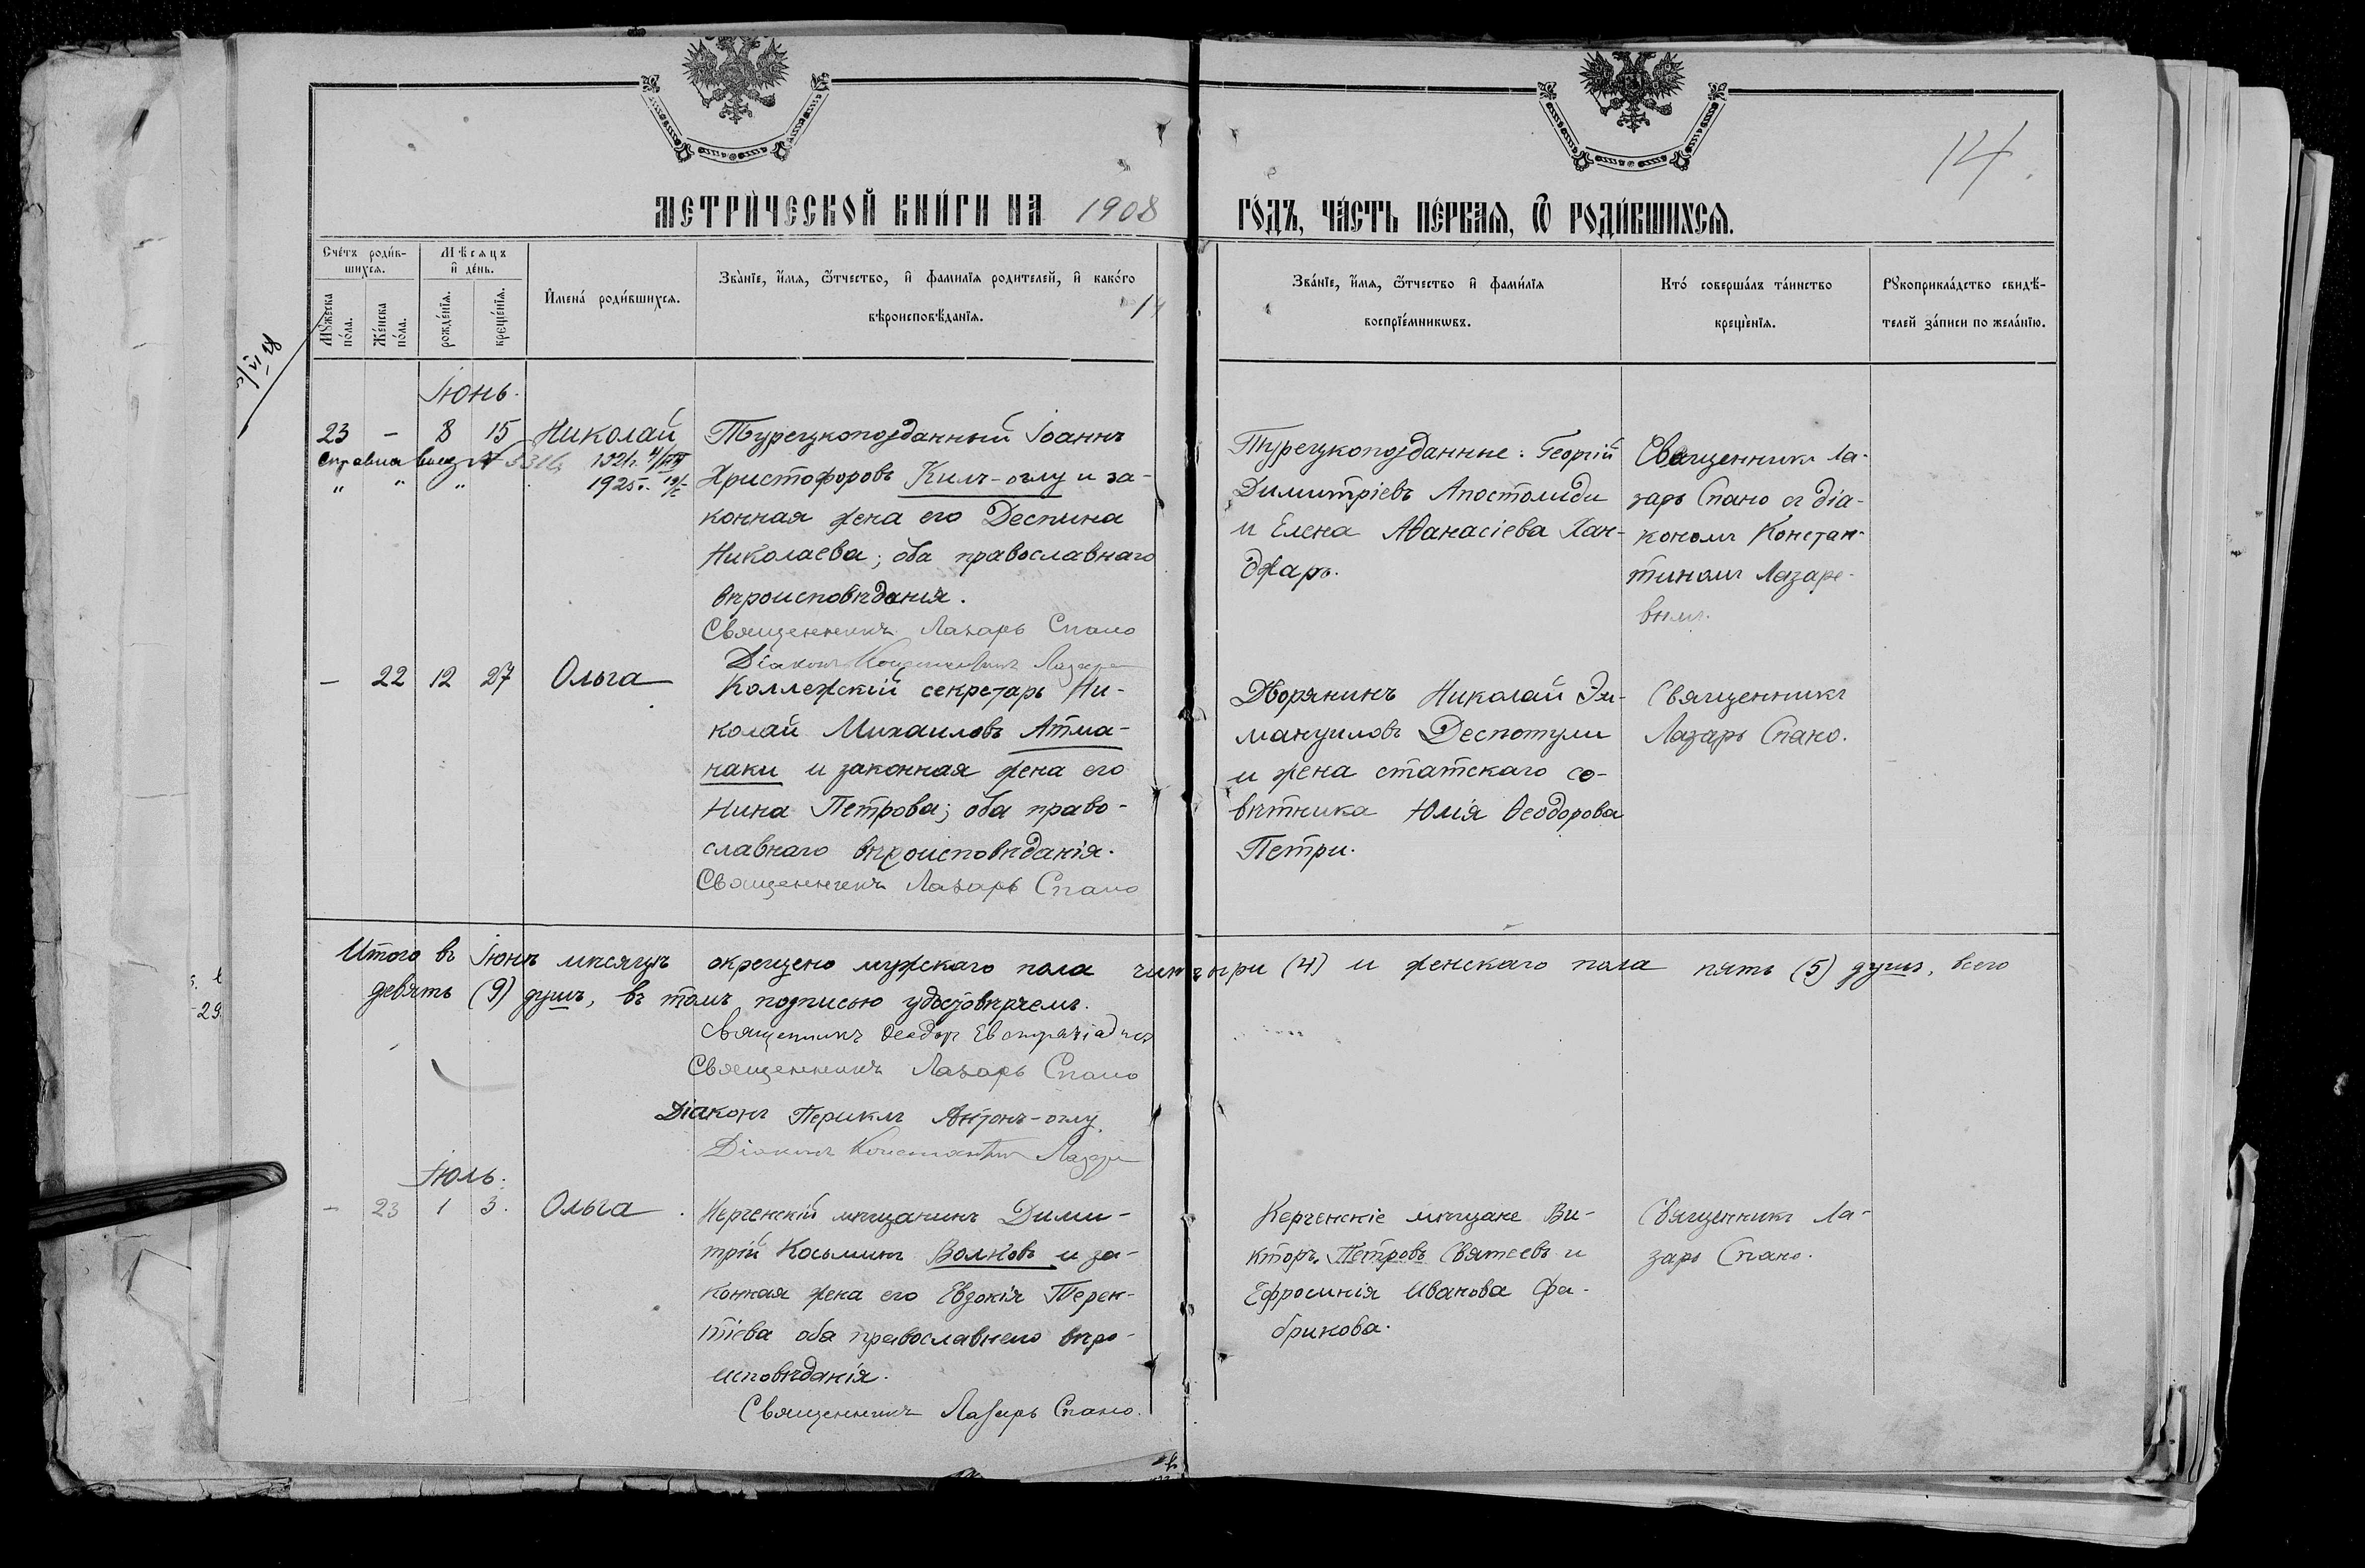 МЕТРИЧЕСКОЙ КНИГИ НА 1908
ГОДЪ, ЧАСТЬ ПЕРВАЯ, Ѿ РОДИВШИХСЯ.
14
Счетъ родив-
шихся.
Мужеска
пола.
Женска
пола.
Мѣсяцъ
и день.
рожденія.
крещенія.
Имена родившихся.
Званіе, имя, ѿтчество, и фамилія родителей, и какого
вѣроисповѣданія.
14
Званіе, имя, ѿтчество и фамилія
воспріемникѡвъ.
Кто совершалъ таинство
крещенія.
Рукоприкладство свидѣ-
телей записи по желанію.
Іюнь.
23 - 8 15 Николай
Справка выд. №
1925 г.
Турецкоподданный Іоаннъ
Христофоровъ Килъ-оглу и за-
конная жена его Деспина
Николаева; оба православнаго
вѣроисповѣданія.
Священникъ Лазарь Спано
Діаконъ Константинъ Лазаре
Турецкоподданные: Георгій
Димитріевъ Апостолиди
и Елена Аѳанасіева Хан-
джаръ.
Священникъ Ла-
зарь Спано съ діа-
кономъ Констан-
тиномъ Лазаре-
вымъ.
- 22 12 27 Ольга
Коллежскій секретарь Ни-
колай Михаиловъ Атма-
наки и законная жена его
Нина Петрова; оба право-
славнаго вѣроисповѣданія.
Священникъ Лазарь Спано
Дворянинъ Николай Эм-
мануиловъ Деспотули
и жена статскаго со-
вѣтника Юлія Ѳеодорова
Петри.
Священникъ
Лазарь Спано.
Итого въ Іюнѣ мѣсяцѣ окрещено мужскаго пола четыри (4) и женскаго пола пять (5) душъ, всего
девять (9) душъ, въ томъ подписью удостовѣряемъ.
Священникъ Ѳеодоръ
Священникъ Лазарь Спано
Діаконъ Периклъ Антонъ-оглу.
Діаконъ Константинъ Лазаре
Іюль.
- 23 1 3. Ольга
Керченскій мѣщанинъ Дими-
трій Косьминъ Волковъ и за-
конная жена его Евдокія Терен-
тіева оба православнаго вѣро-
исповѣданія.
Священникъ Лазарь Спано.
Керченскіе мѣщане Ви-
кторъ Петровъ Святеевъ и
Ефросинія Иванова Фа-
брикова.
Священникъ Ла-
зарь Спано.
29